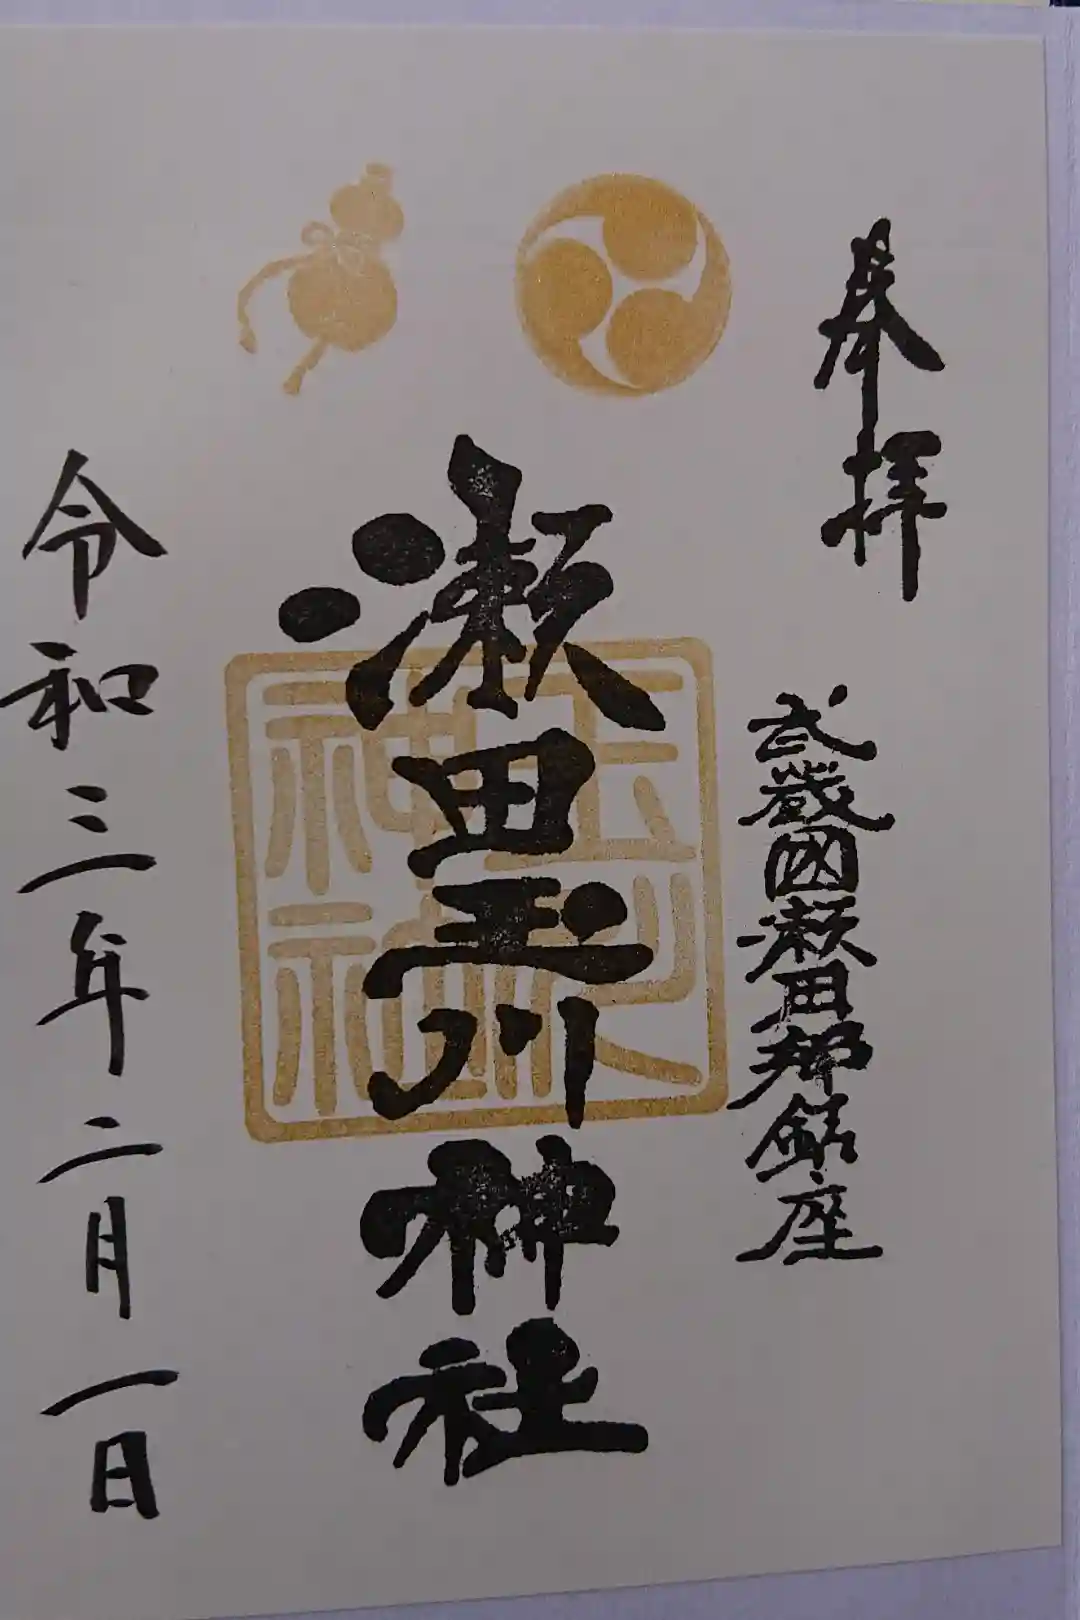 奉拝
武蔵國瀬田郷鎮座
瀬田玉川神社
玉川神社
令和三年二月一日